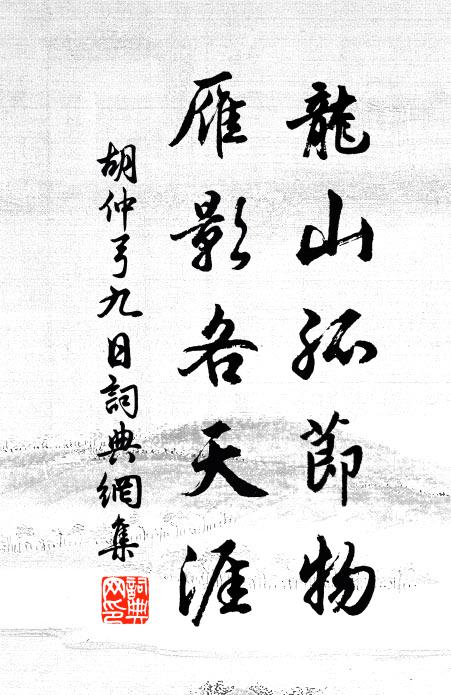 龍山孤節物
雁影各天涯
胡仲弓九日詞典網集
詞典網印